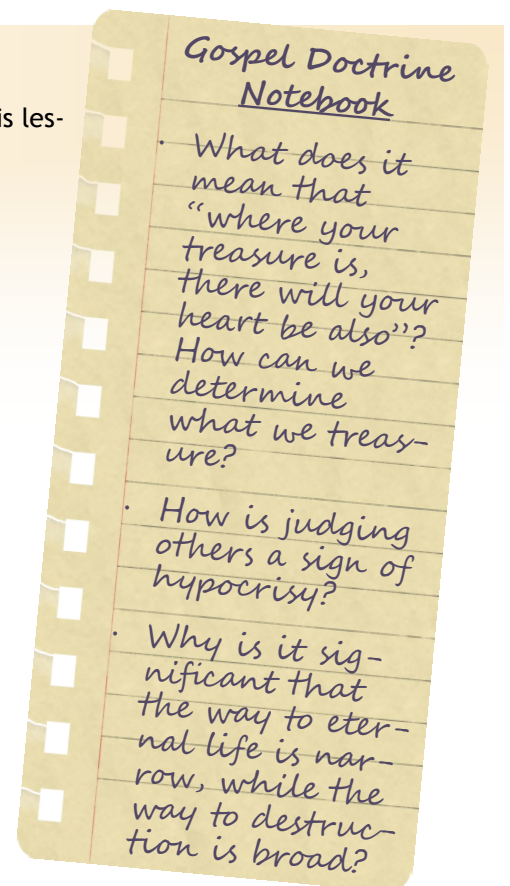 is les-
Gospel Doctrine
Notebook
• What does it
mean that
“where your
treasure is,
there will your
heart be also”?
How can we
determine
what we treas-
ure?
• How is judging
others a sign of
hypocrisy?
• Why is it sig-
nificant that
the way to eter-
nal life is nar-
row, while the
way to destruc-
tion is broad?